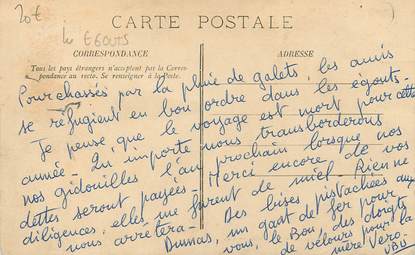 20€
les EGOUTS
CARTE POSTALE
CORRESPONDANCE
ADRESSE
Tous les pays étrangers n'acceptent pas la Corres-
pondance au recto. Se renseigner à la Poste.
Pourchassés par la pluie de galets, les amis
se réfugient en bon ordre dans les égouts.
Je pense que le voyage est mort pour cette
année. Qu'importe nous transborderons
nos gidouilles l'an prochain lorsque nos
dettes seront payées. Merci encore de vos
diligences, elles ne furent de miel. Rien ne
nous arrêtera. Des bises pistachées aux
Dumas, un gant de fer pour
vous, le Bou, des doigts
de velours pour la
mère Vero.